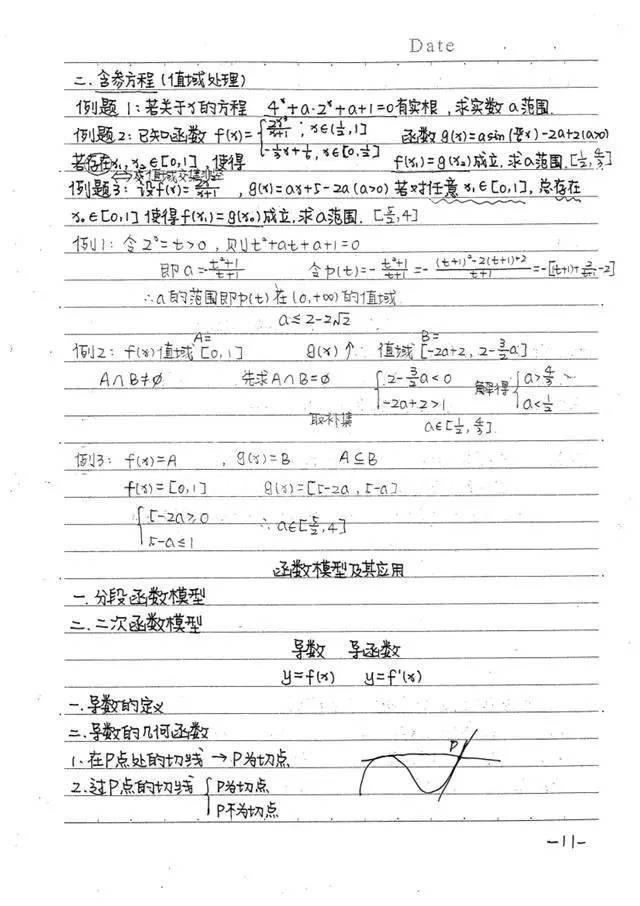 Date
二.含参方程(值域处理)
例题1:若关于x的方程 4^x+a·2^x+a+1=0有实根,求实数a范围.
例题2:已知函数 f(x)={2x³/(x+1), x∈(1/2,1] 函数g(x)=asin(π/6 x)-2a+2(a>0)
-1/3x+1/6, x∈[0,1/2]
若存在x₁,x₂∈[0,1],使得 f(x₁)=g(x₂)成立.求a范围.[1/2,4/3]
⇔求值域交集非空
例题3:设f(x)=2x²/(x+1),g(x)=ax+5-2a(a>0)若对任意x₁∈[0,1],总存在
x₀∈[0,1]使得f(x₁)=g(x₀)成立.求a范围.[5/2,4]
例1:令2^x=t>0,则t²+at+a+1=0
即a=-(t²+1)/(t+1) 令φ(t)=-(t²+1)/(t+1)=-((t+1)²-2(t+1)+2)/(t+1)=-[(t+1)+2/(t+1)-2]
∴a的范围即φ(t)在(0,+∞)的值域
a≤2-2√2
例2:f(x)值域A=[0,1] g(x)↑ 值域B=[-2a+2,2-3/2a]
A∩B≠∅ 先求A∩B=∅ {2-3/2a<0 解得{a>4/3
-2a+2>1 a<1/2
取补集 a∈[1/2,4/3]
例3:f(x)=A ,g(x)=B A⊆B
f(x)=[0,1] g(x)=[5-2a,5-a]
{5-2a≥0 ∴a∈[5/2,4]
5-a≤1
函数模型及其应用
一.分段函数模型
二.二次函数模型
导数 导函数
y=f(x) y=f'(x)
一.导数的定义
二.导数的几何函数
1.在P点处的切线→P为切点 P
2.过P点的切线{P为切点
P不为切点
-11-